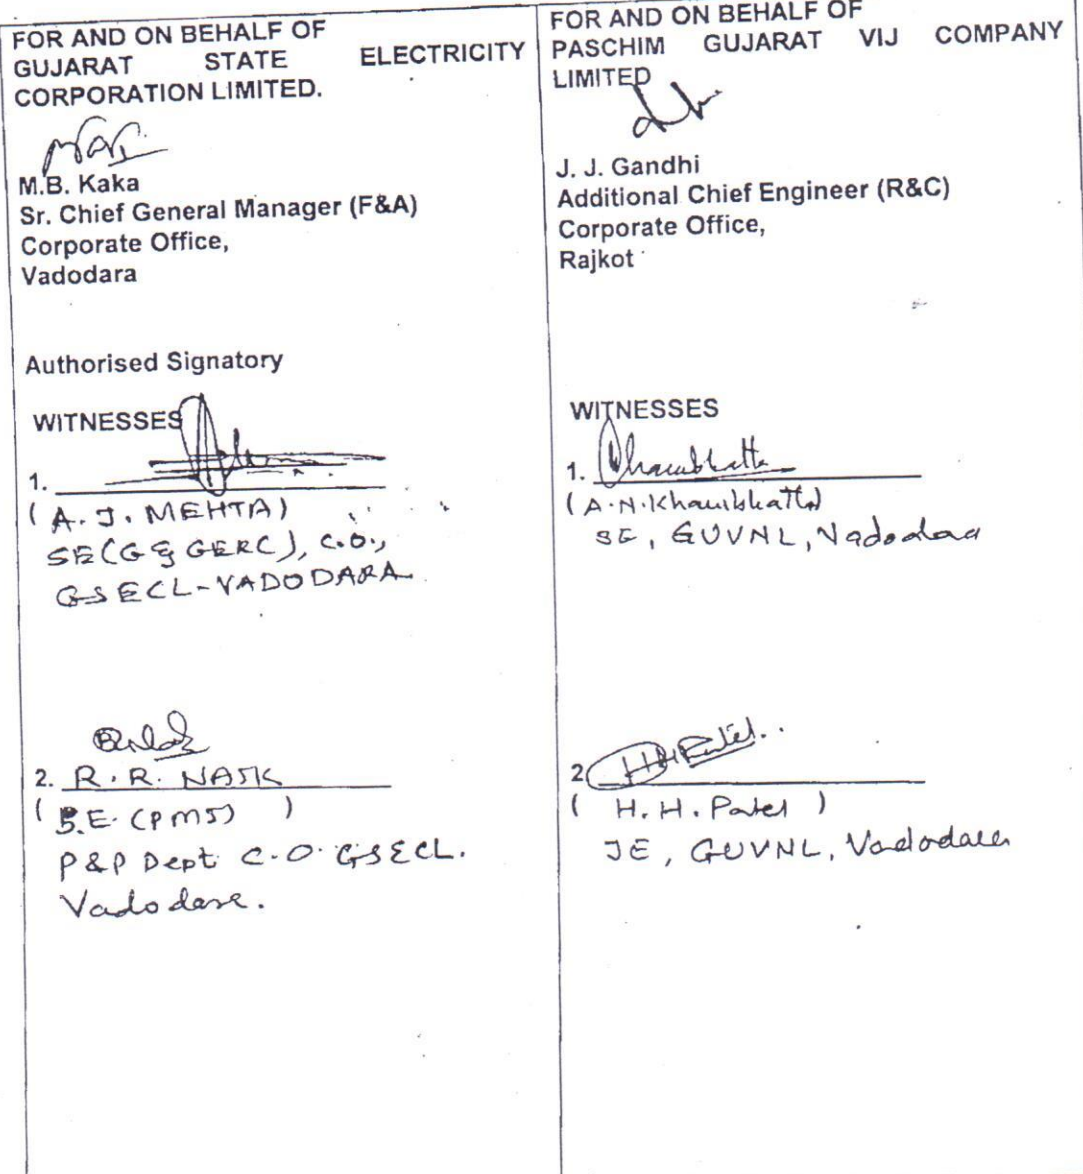 FOR AND ON BEHALF OF
GUJARAT STATE ELECTRICITY
CORPORATION LIMITED.
M.B. Kaka
Sr. Chief General Manager (F&A)
Corporate Office,
Vadodara
Authorised Signatory
WITNESSES
1.
(A. J. MEHTA)
SE(G & GERC), C.O.,
GSECL-VADODARA
2. R. R. NAIK
(S.E. (PMS) )
P&P Dept C.O. GSECL.
Vadodara.
FOR AND ON BEHALF OF
PASCHIM GUJARAT VIJ COMPANY
LIMITED
J. J. Gandhi
Additional Chief Engineer (R&C)
Corporate Office,
Rajkot
WITNESSES
1. Khambhatta
(A.N.Khambhatta)
SE, GUVNL, Vadodara
2 HHPatel..
( H. H. Patel )
JE, GUVNL, Vadodara